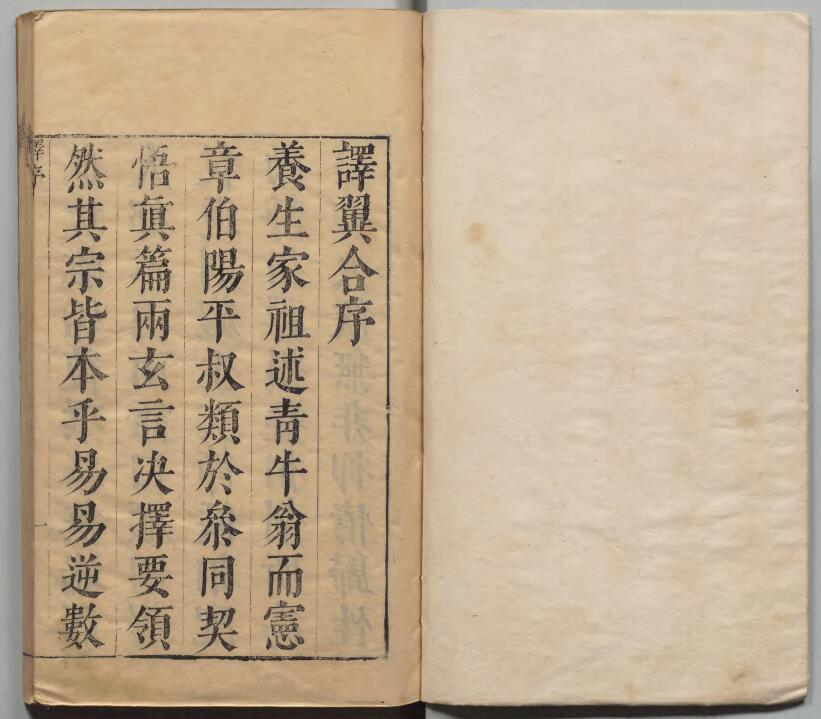 譯翼合序
養生家祖述青牛翁而憲
章伯陽平叔類於叅同契
悟眞篇兩玄言决擇要領
然其宗皆本乎易易逆數
譯序
一